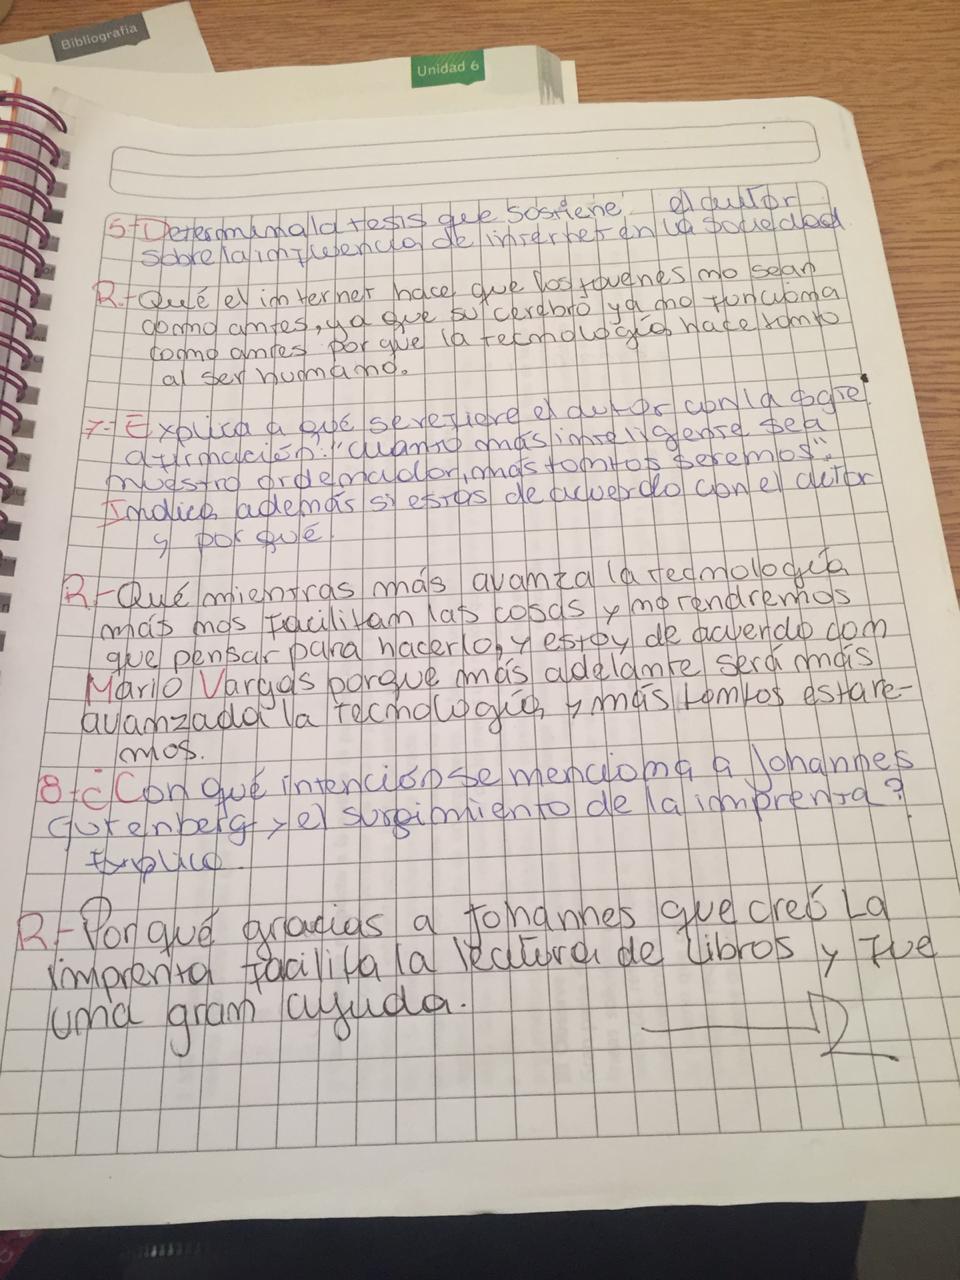 Bibliografia
Unidad 6
5- Determina la tesis que sostiene el autor
sobre la influencia de internet en la sociedad
R.- Qué el internet hace que los jovenes no sean
como antes, ya que su cerebro ya no funciona
como antes por que la tecnología hace tonto
al ser humano.
7- Explica a qué se refiere el autor con la sogie
afirmación: "cuanto más inteligente sea
nuestro ordenador, más tontos seremos".
Indica además si estás de acuerdo con el autor
y por qué
R- Qué mientras más avanza la tecnología
más nos facilitan las cosas y no tendremos
que pensar para hacerlo, y estoy de acuerdo con
Mario Vargas porque más adelante será más
avanzada la tecnología, y más tontos estare-
mos.
8- ¿Con qué intención se menciona a Johannes
Gutenberg y el surgimiento de la imprenta?
Explica.
R- Por qué gracias a Johannes que creó La
imprenta facilita la lectura de Libros y fue
una gran ayuda.